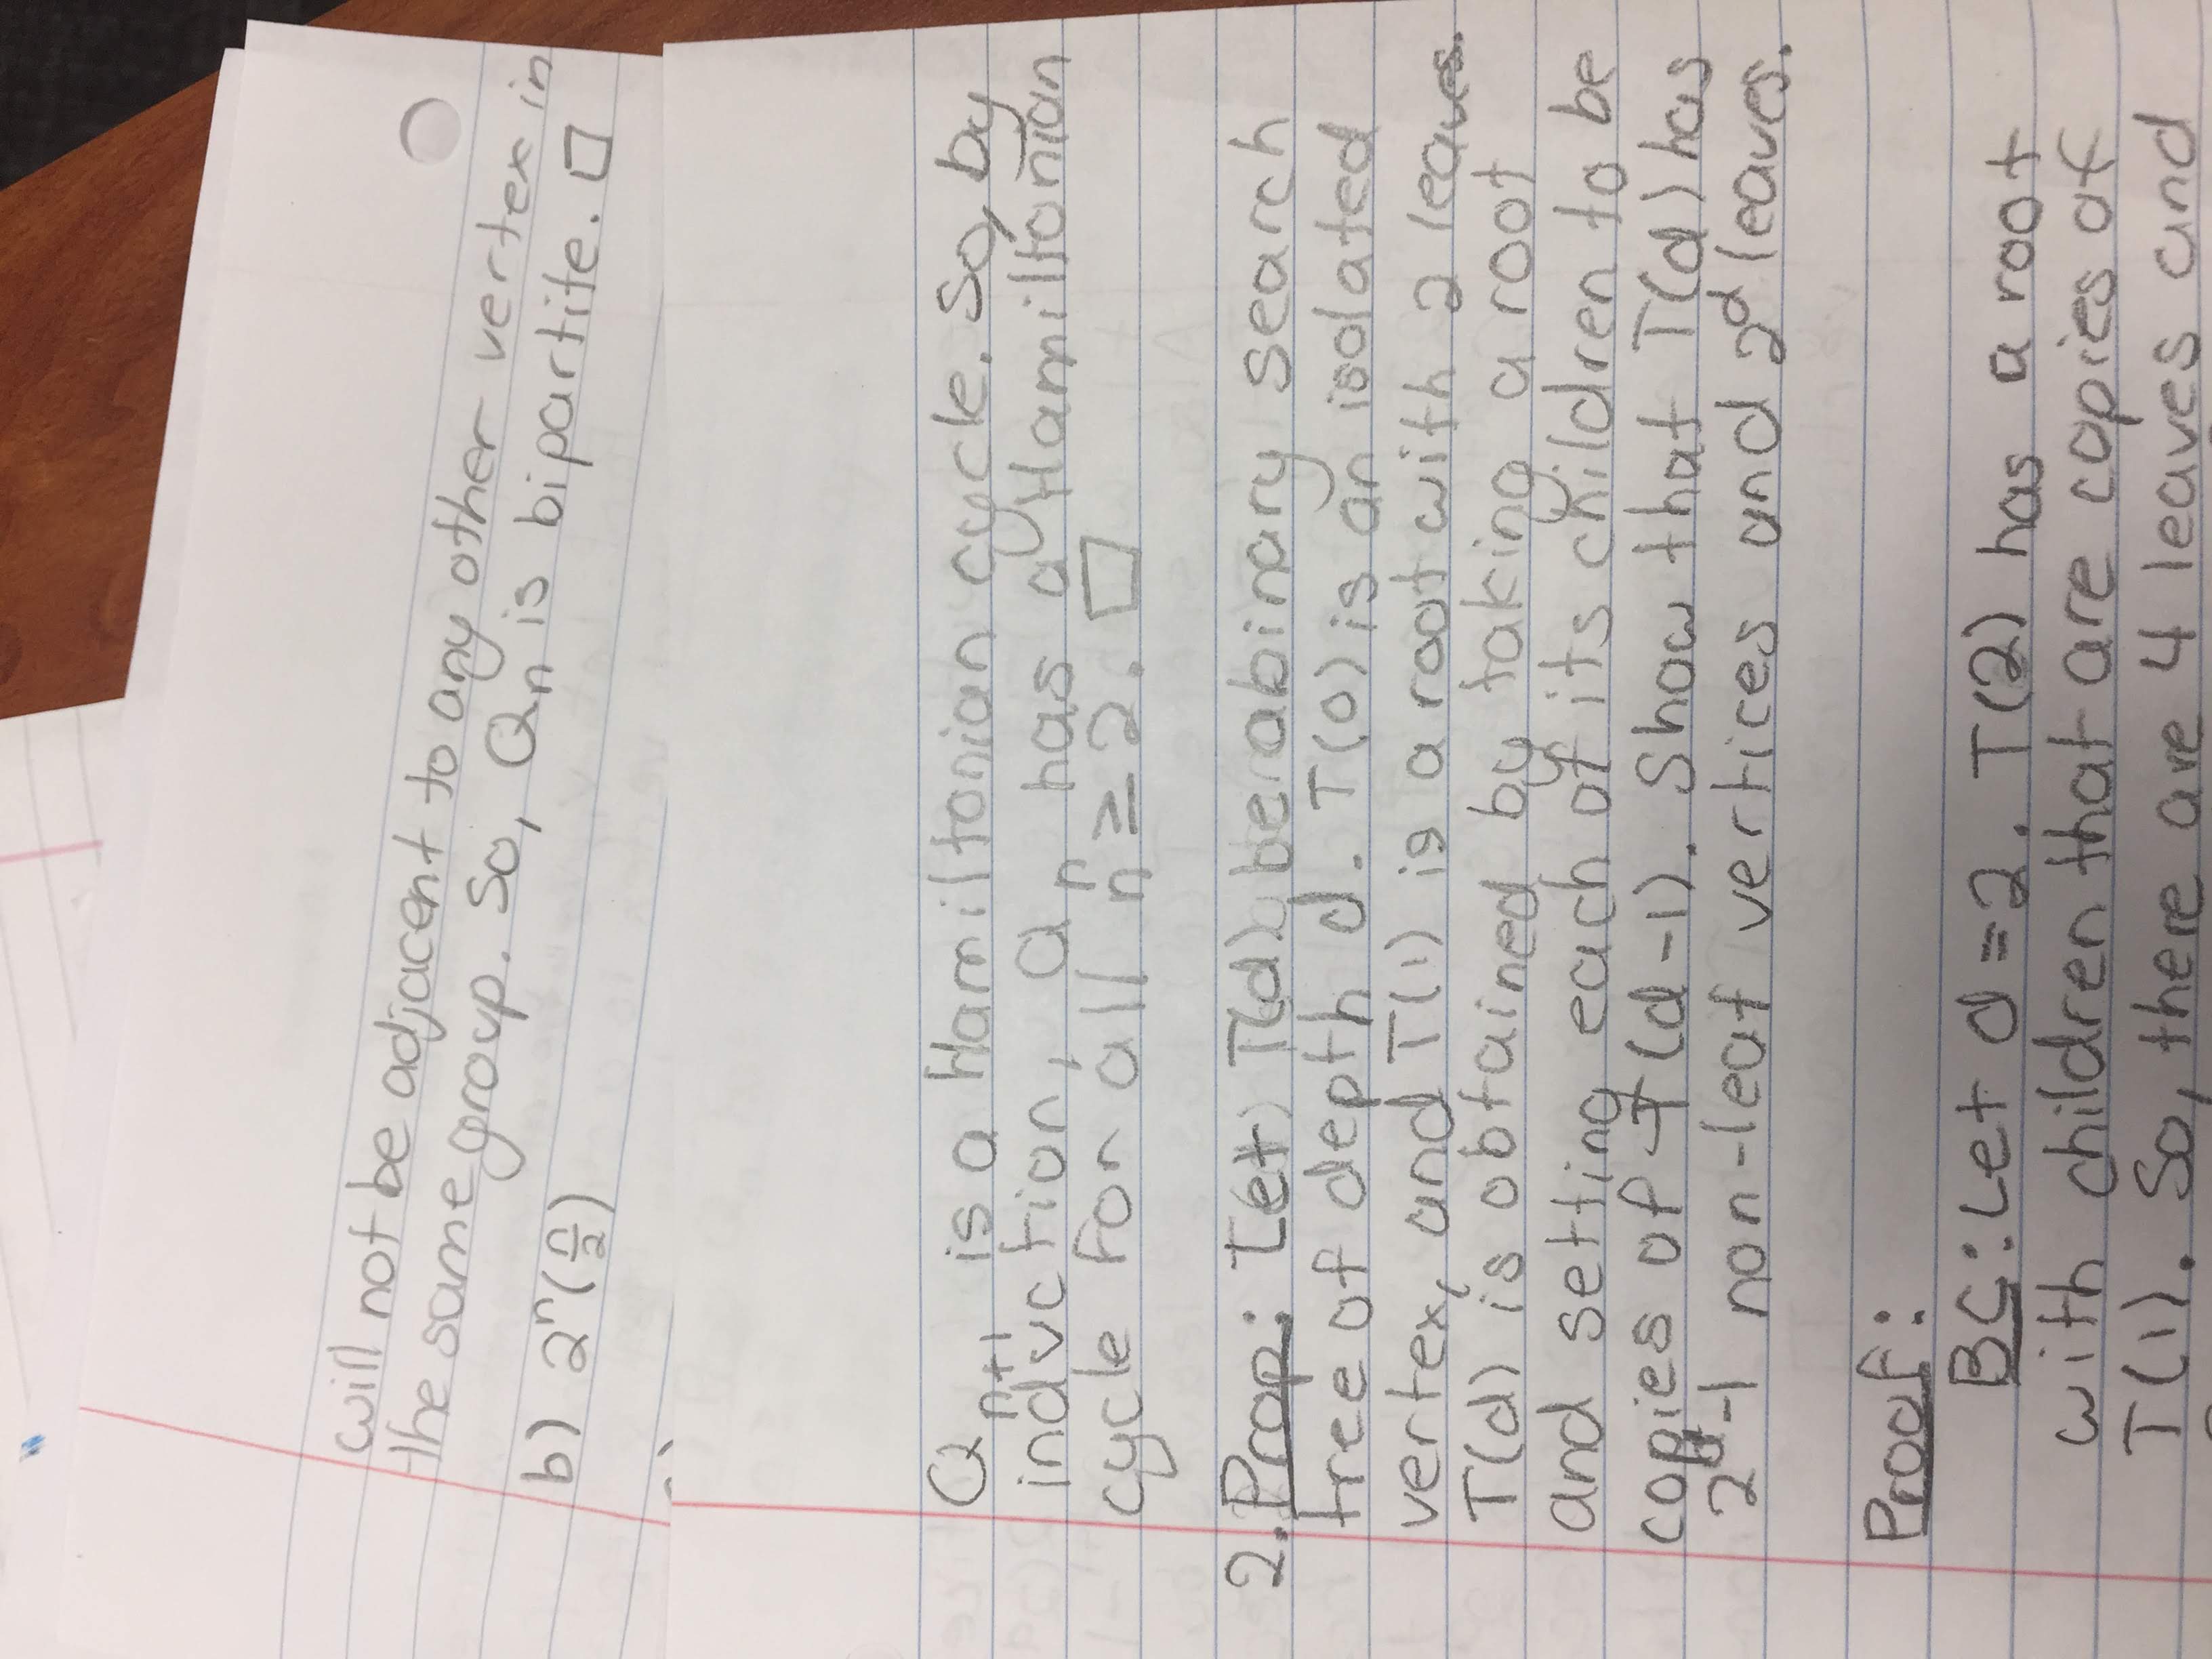 will not be adjacent to any other vertex in
the same group. So, Qn is bipartite. □
b) 2ⁿ(n/2)
Qn+1 is a Hamiltonian cycle. So, by
induction, Qn has a Hamiltonian
cycle for all n ≥ 2. □
2. Prop: Let T(d) be a binary search
tree of depth d. T(0) is an isolated
vertex, and T(1) is a root with 2 leaves.
T(d) is obtained by taking a root
and setting each of its children to be
copies of T(d-1). Show that T(d) has
2ᵈ-1 non-leaf vertices and 2ᵈ leaves.
Proof:
BC: Let d = 2. T(2) has a root
with children that are copies of
T(1). So, there are 4 leaves and